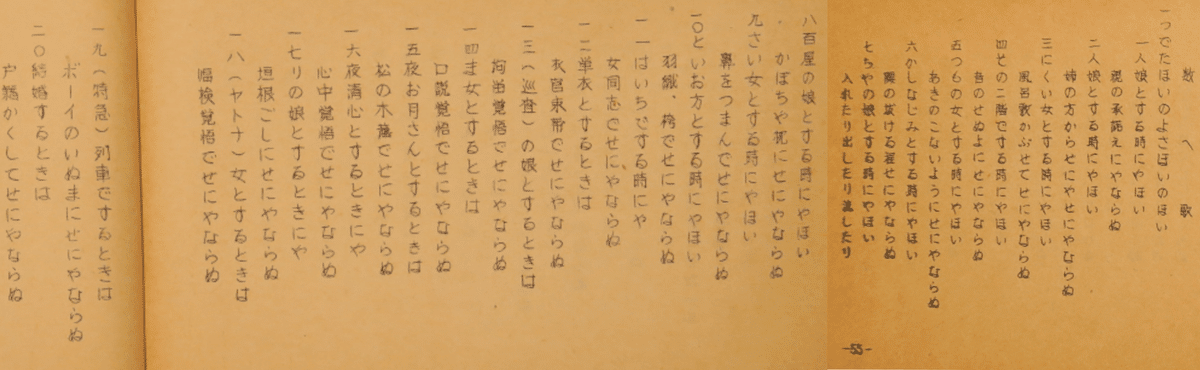 数へ歌
一つでたほいのよさほいのほい
一人娘とする時にやほい
親の承諾えにやならぬ
二人娘とする時にやほい
姉の方からせにやせにやならぬ
三にくい女とする時にやほい
風呂敷かぶせてせにやならぬ
四その二階でする時にやほい
音のせぬよにせにやならぬ
五つもの女とする時にやほい
あきのこないようにせにやならぬ
六かしなじみとする時にやほい
腰の抜ける程せにやならぬ
七ちやの娘とする時にやほい
入れたり出したり流したり
-55-
八百屋の娘とする時にやほい
かぼちや枕にせにやならぬ
九さい女とする時にやほい
鼻をつまんでせにやならぬ
一〇といお方とする時にやほい
羽織、袴でせにやならぬ
一一はいちでする時にや
女同志でせにやならぬ
一二単衣とするときは
衣冠束帯でせにやならぬ
一三(巡査)の娘とするときは
拘留覚悟でせにやならぬ
一四ま女とするときは
口説覚悟でせにやならぬ
一五夜お月さんとするときは
松の木蔭でせにやならぬ
一六夜清心とするときにや
心中覚悟でせにやならぬ
一七りの娘とするときにや
垣根ごしにせにやならぬ
一八(ヤトナ)女とするときは
臨検覚悟でせにやならぬ
一九(特急)列車でするときは
ボーイのいぬまにせにやならぬ
二〇結婚するときは
戸籍かくしてせにやならぬ